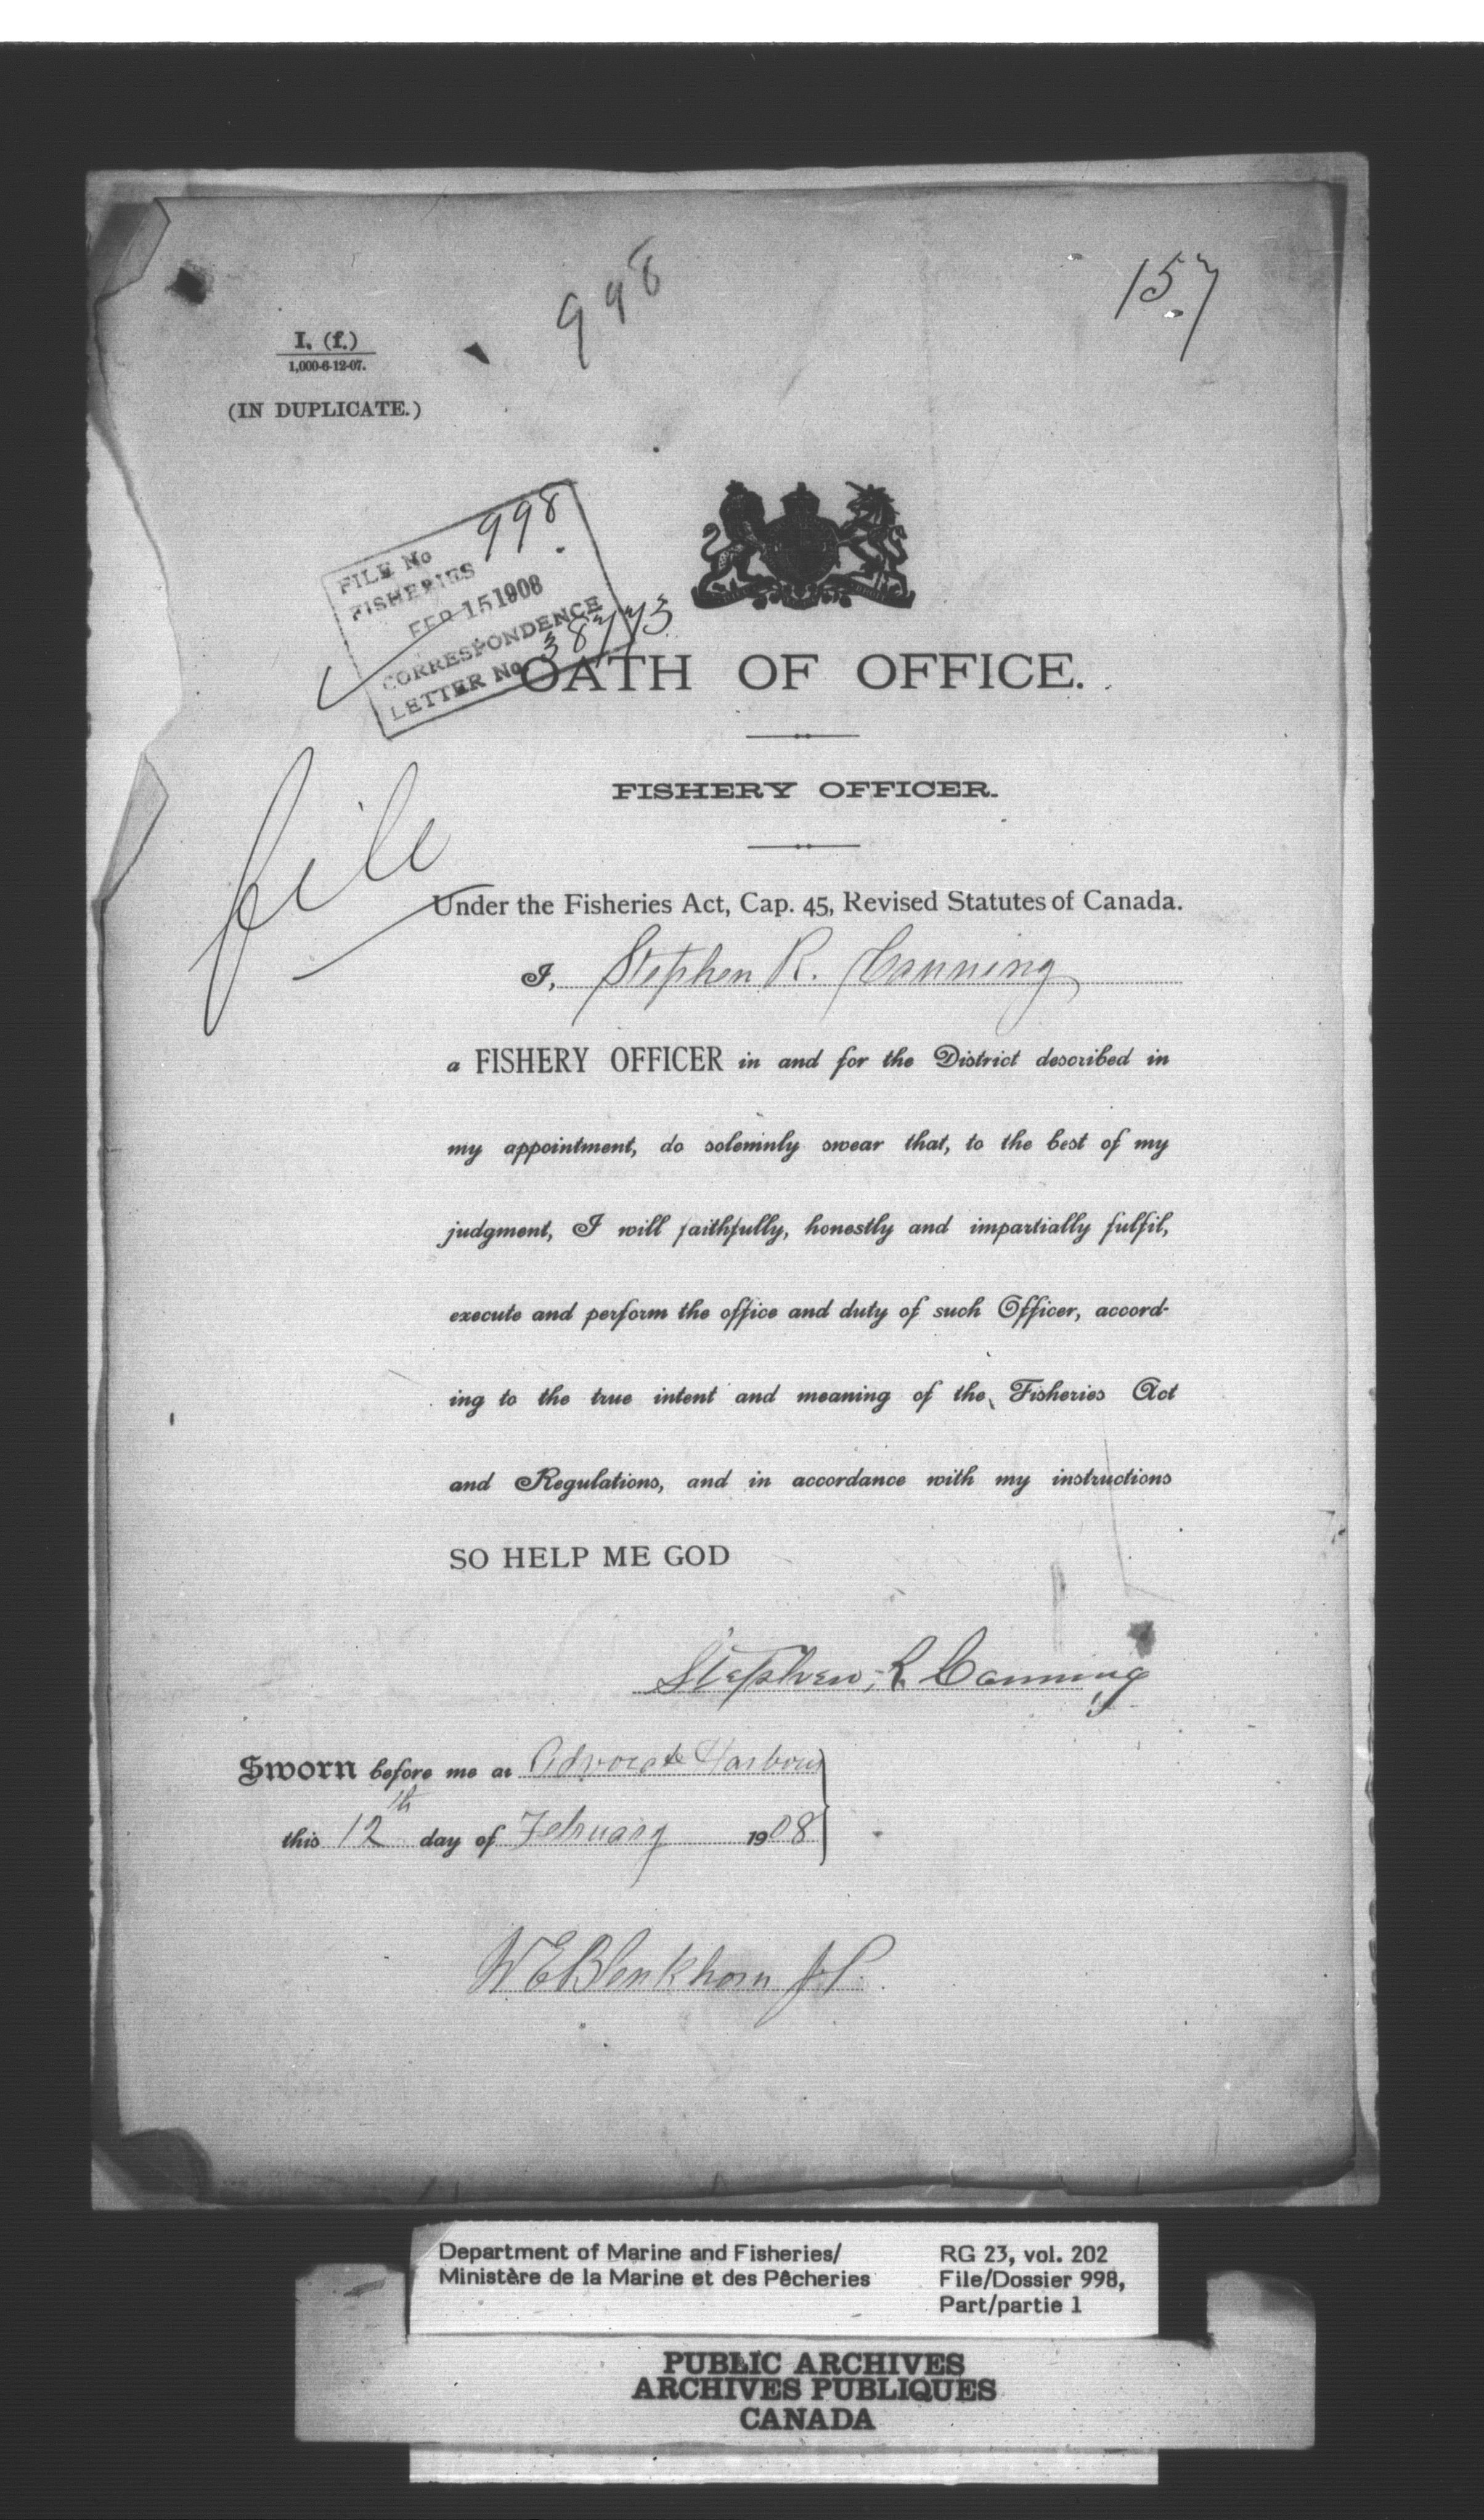 998
157
I. (f.)
1,000-6-12-07.
(IN DUPLICATE.)
FILE No 998
FISHERIES
FEB 15 1908
CORRESPONDENCE
LETTER No 38773
OATH OF OFFICE.
FISHERY OFFICER.
file
Under the Fisheries Act, Cap. 45, Revised Statutes of Canada.
I, Stephen R. Canning
a FISHERY OFFICER in and for the District described in
my appointment, do solemnly swear that, to the best of my
judgment, I will faithfully, honestly and impartially fulfil,
execute and perform the office and duty of such Officer, accord-
ing to the true intent and meaning of the Fisheries Act
and Regulations, and in accordance with my instructions
SO HELP ME GOD
Stephen R Canning
Sworn before me at Advocate Harbour
this 12th day of February 1908
W E Blenkhorn J.P.
Department of Marine and Fisheries/ RG 23, vol. 202
Ministère de la Marine et des Pêcheries File/Dossier 998,
Part/partie 1
PUBLIC ARCHIVES
ARCHIVES PUBLIQUES
CANADA